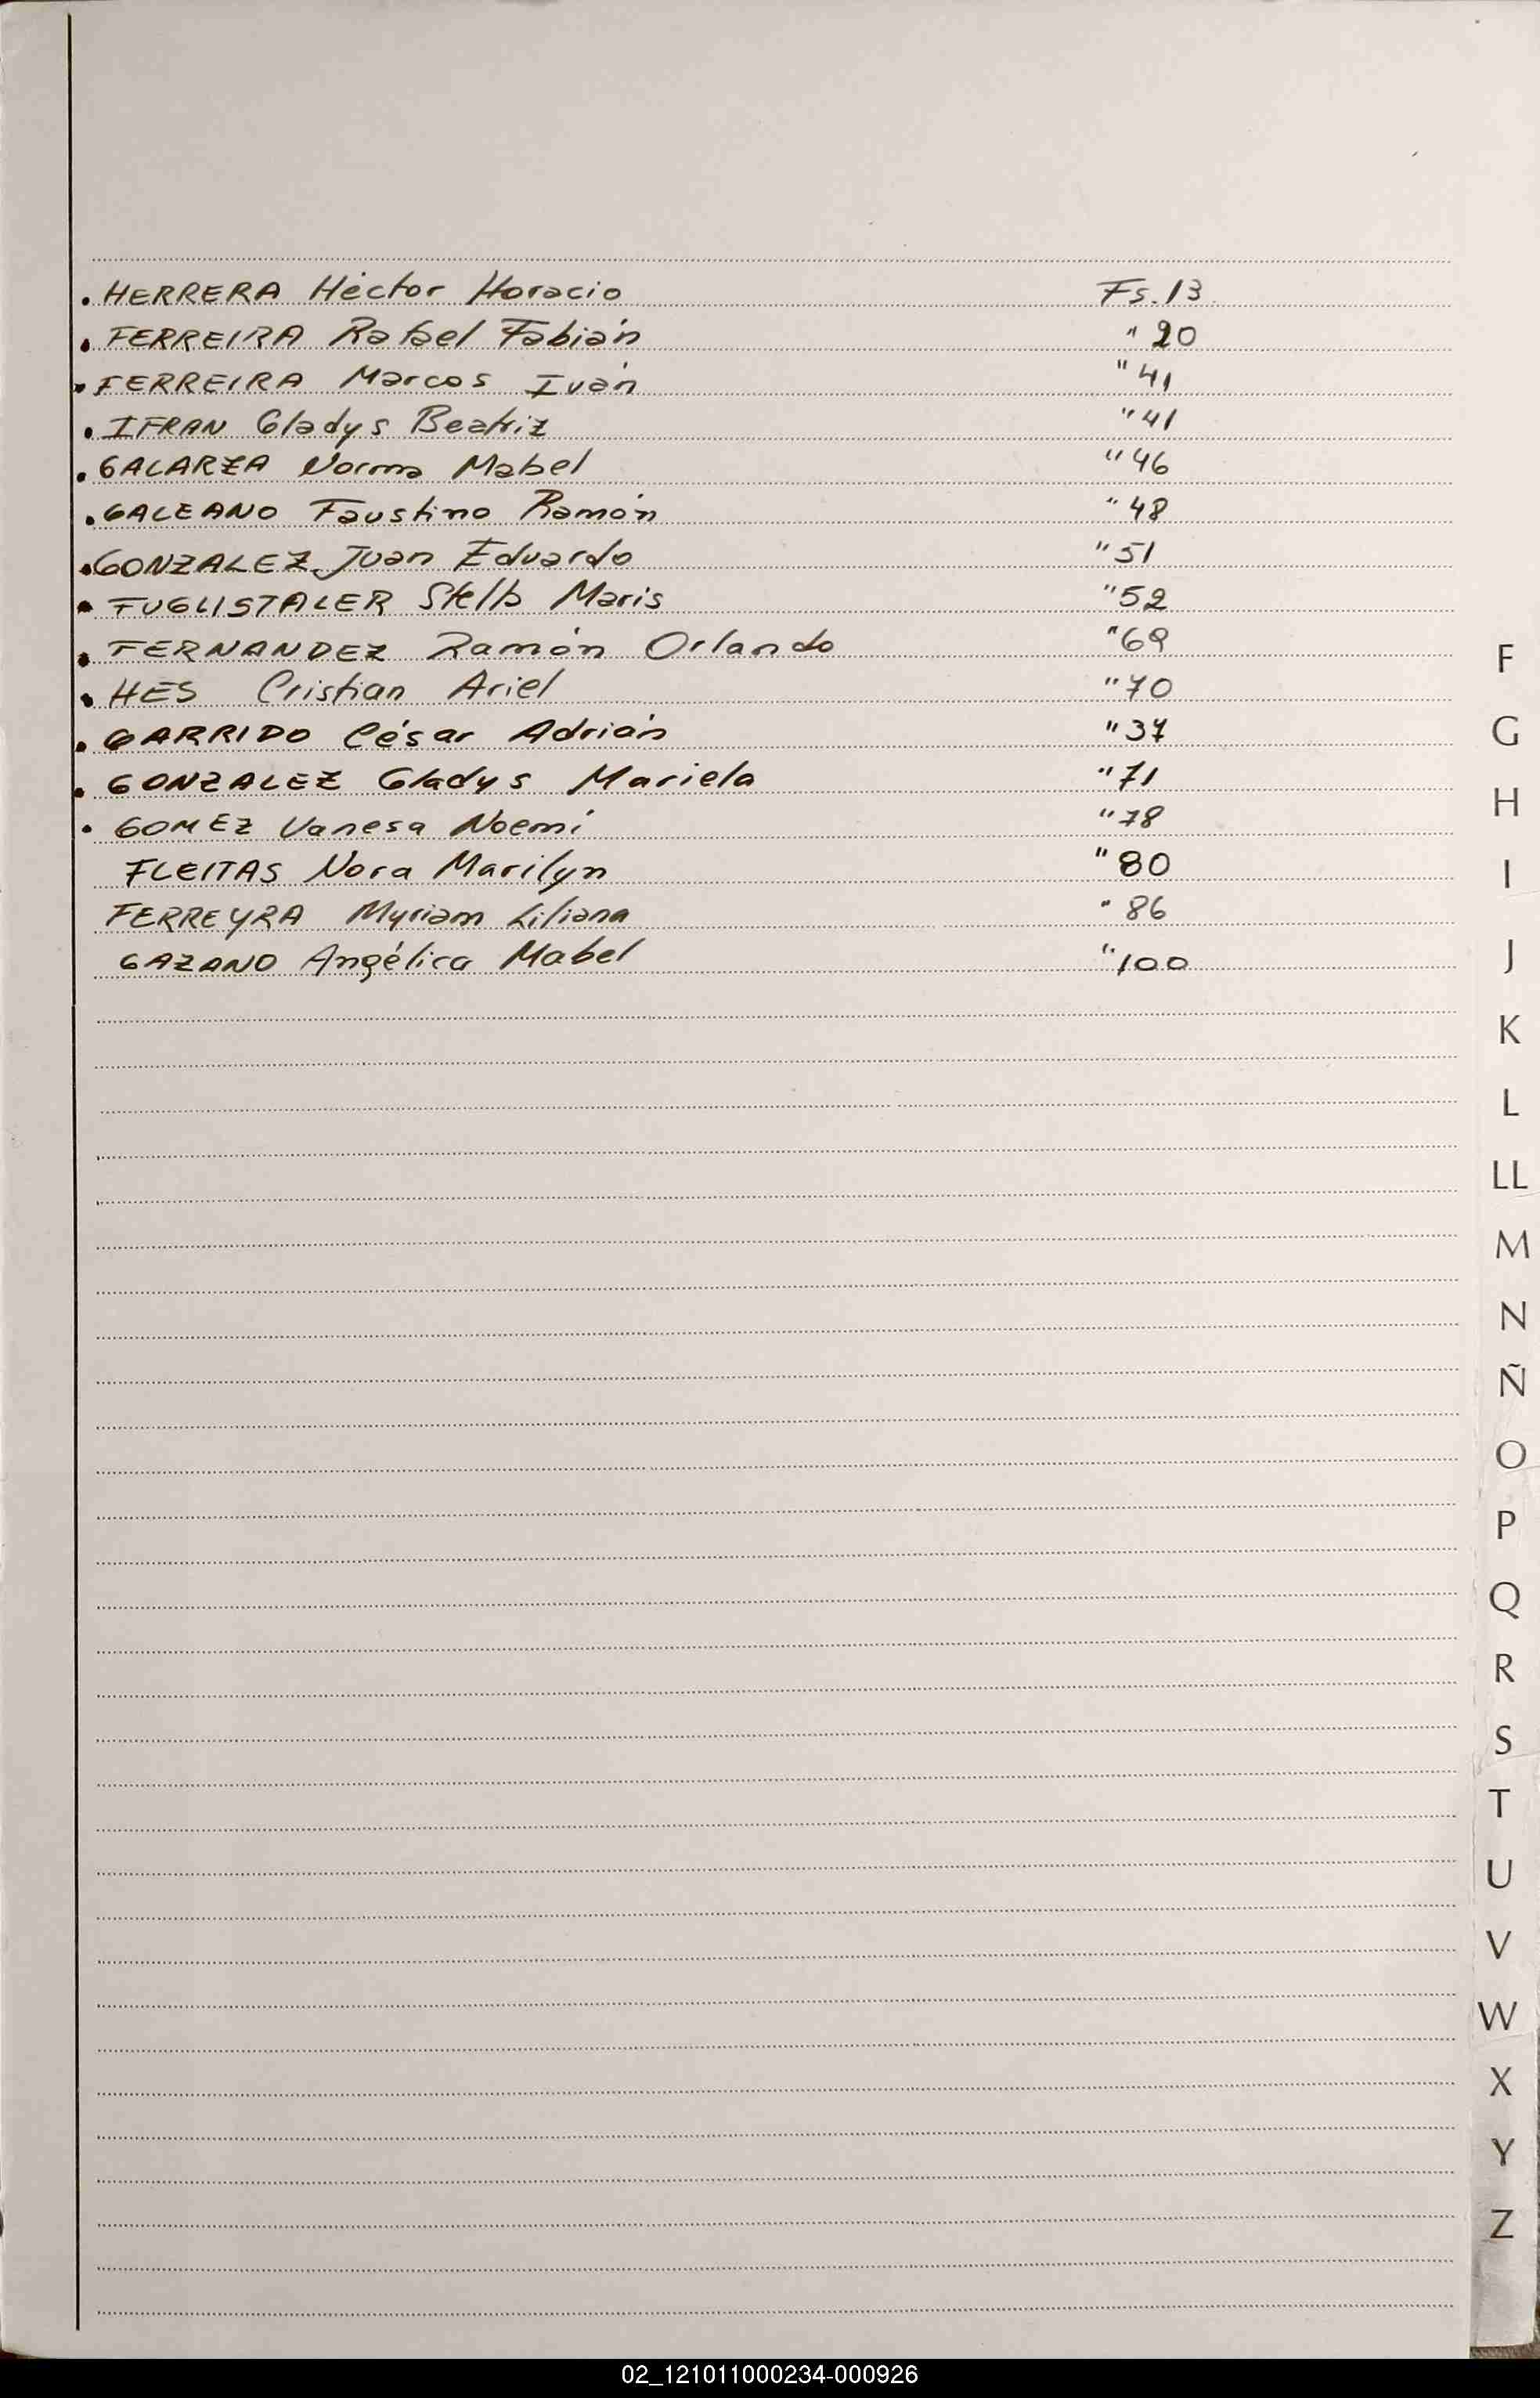 . HERRERA Héctor Horacio Fs. 13
. FERREIRA Rafael Fabián " 20
. FERREIRA Marcos Iván " 41
. IFRAN Gladys Beatriz " 41
. GALARZA Norma Mabel " 46
. GALEANO Faustino Ramón " 48
. GONZALEZ Juan Eduardo " 51
. FUGLISTALER Stella Maris " 52
. FERNANDEZ Ramón Orlando " 69
. HES Cristian Ariel " 70
. GARRIDO César Adrián " 37
. GONZALEZ Gladys Mariela " 71
. GOMEZ Vanesa Noemí " 78
FLEITAS Nora Marilyn " 80
FERREYRA Myriam Liliana " 86
GAZANO Angélica Mabel " 100
F
G
H
I
J
K
L
LL
M
N
Ñ
O
P
Q
R
S
T
U
V
W
X
Y
Z
02_121011000234-000926